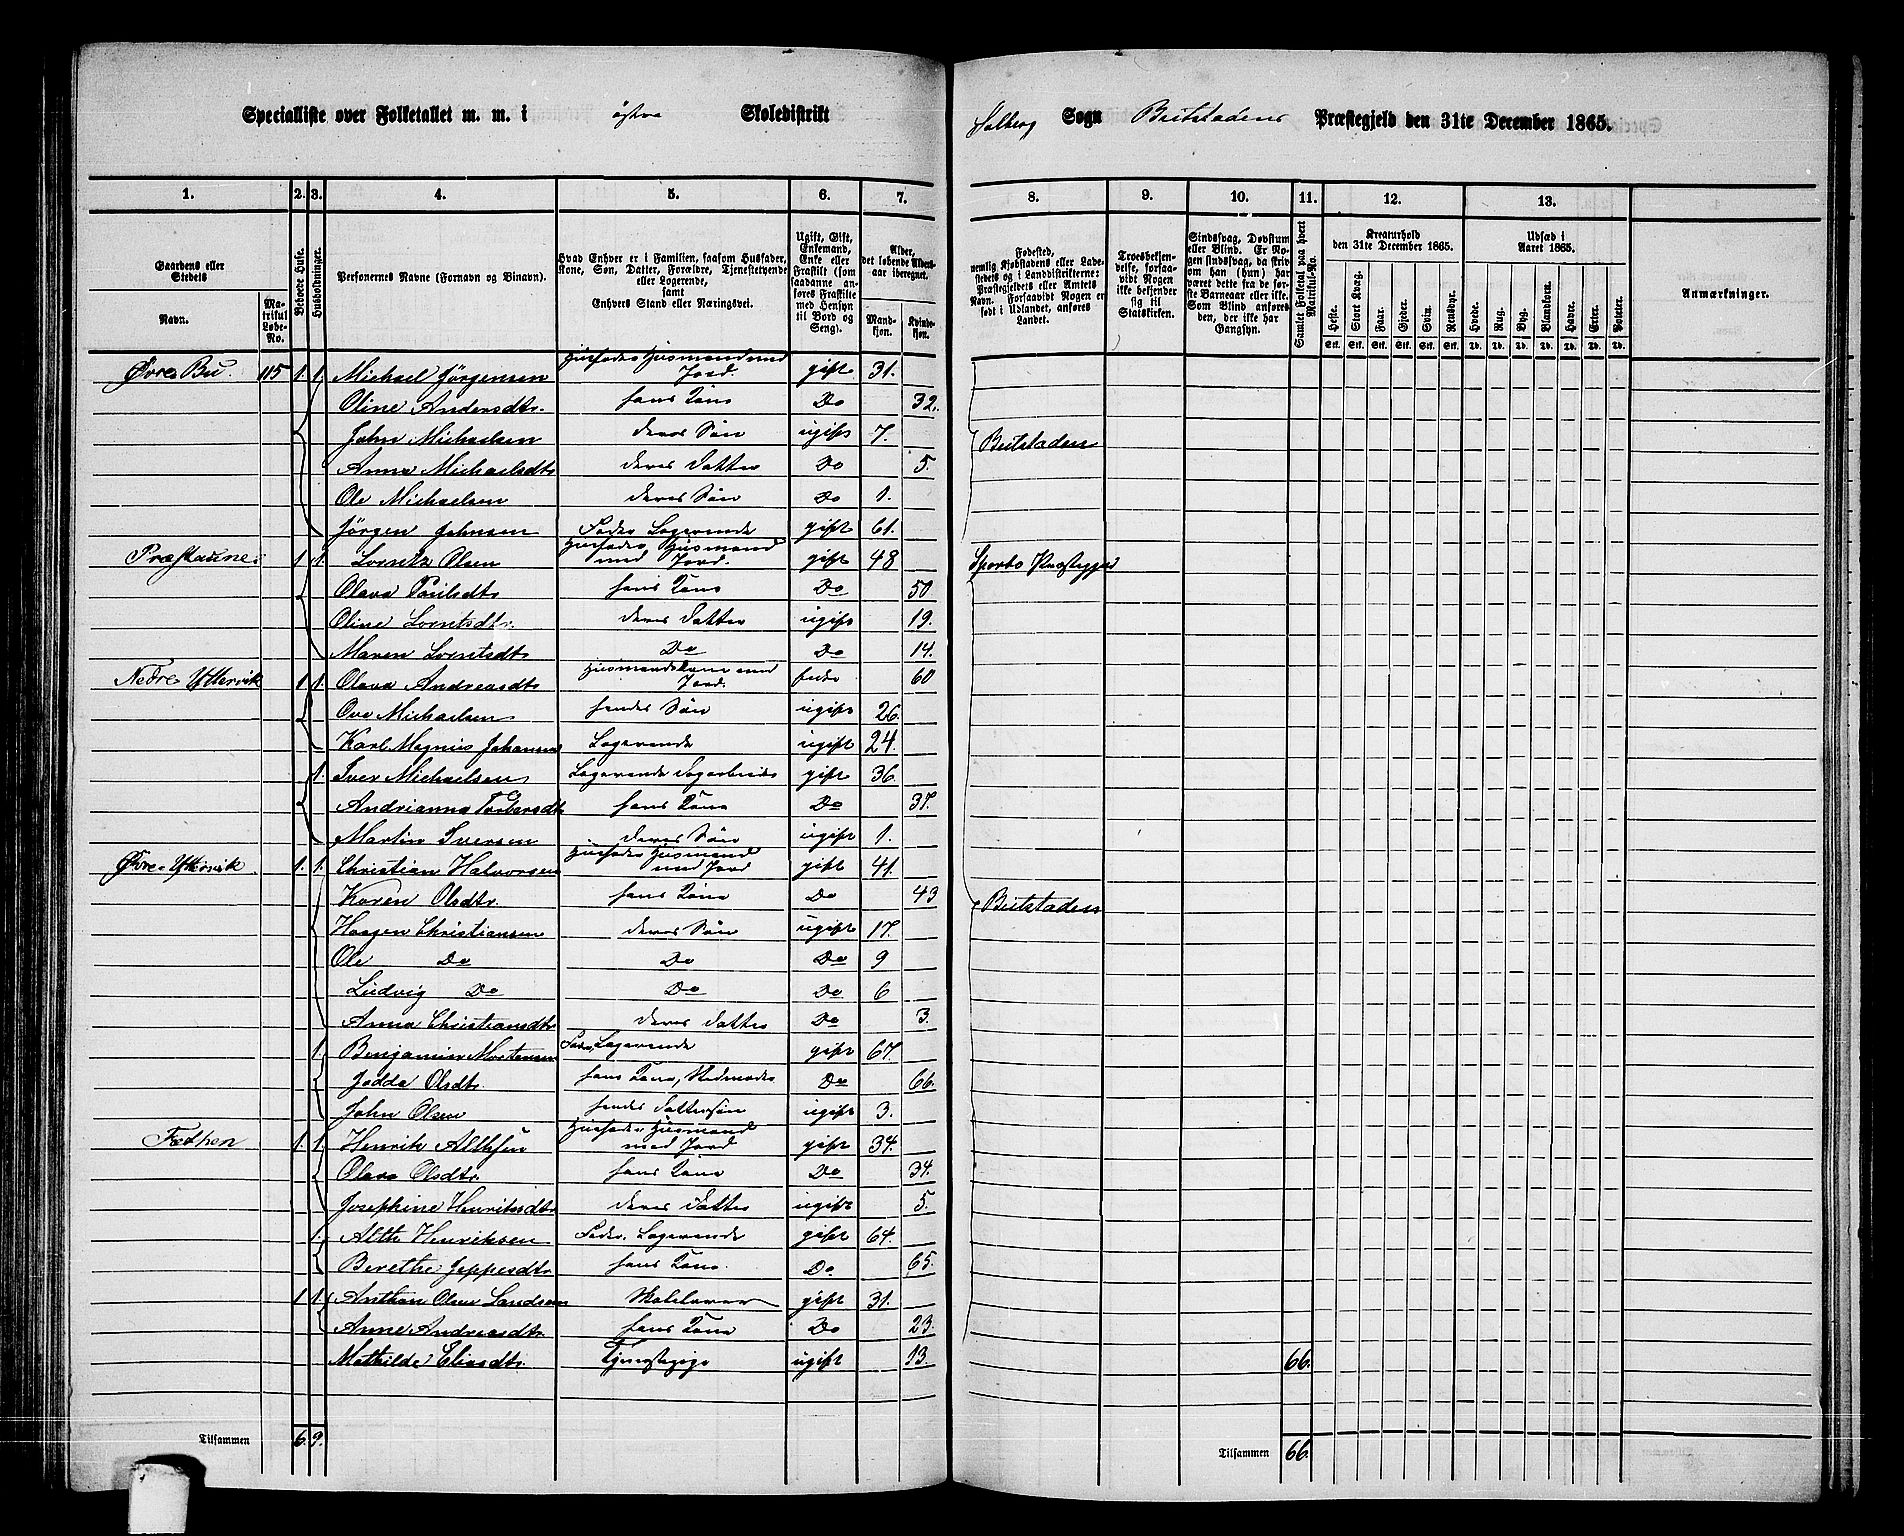 Specialliste over Folketallet m. m. i østre Skoledistrikt
Solberg Sogn Beitstadens Præstegjeld den 31te December 1865.
1. 2. 3. 4. 5. 6. 7. 8. 9. 10. 11. 12. 13.
Gaardens eller Stedets
Navn.
Matrikul Løbe-No.
Beboede Huse.
Husholdninger.
Personernes Navne (Fornavn og Binavn).
Hvad Enhver er i Familien, saasom Husfader, Kone, Søn, Datter, Forældre, Tjenestetyende eller Logerende, samt Enhvers Stand eller Næringsvei.
Ugift, Gift, Enkemand, Enke eller Fraskilt (som saadanne anføres Fraskilte med Hensyn til Bord og Seng).
Alder, det løbende Aldersaar iberegnet.
Mandkjøn.
Kvindekjøn.
Fødested, nemlig Kjøbstadens eller Ladestedets og i Landdistrikterne: Præstegjeldets eller Amtets Navn. Forsaavidt Nogen er født i Udlandet, anføres Landet.
Troesbekjendelse, forsaavidt Nogen ikke bekjender sig til Statskirken.
Sindssvag, Døvstum eller Blind. Er Nogen sindssvag, da skrives om han (hun) har været dette fra de første Barneaar eller ikke. Som Blind anføres den, der ikke har Gangsyn.
Samlet Folketal paa hvert Matrikul-No.
Kreaturhold den 31te December 1865.
Heste. Stort Kvæg. Faar. Gjeder. Svin. Rensdyr.
Stk. Stk. Stk. Stk. Stk. Stk.
Udsæd i Aaret 1865.
Hvede. Rug. Byg. Blandkorn. Havre. Erter. Poteter.
Td. Td. Td. Td. Td. Td. Td.
Anmærkninger.
Øvre Bu. 115 1. 1. Michael Jörgensen Husfader Husmand med Jord. gift 31.
Oline Andersdtr. hans Kone Do 32.
John Michaelsen deres Søn ugift 7. Beitstaden
Anna Michaelsdtr deres Datter Do 5.
Ole Michaelsen deres Søn Do 1.
Jörgen Johnsen Fader Logerende gift 61.
1. 1. Lorntz Olsen Husfader Husmand med Jord. gift 48
Olava Do 50
Oline Lorntsdtr. deres Datter ugift 19.
Maren Lorntsdtr Do Do 14.
Nedre Yttervik 1 1. Olava Andreasdtr med Jord. Enke 60
Ove Michaelsen hendes Søn ugift 26.
Karl Magnus Johansen Logerende ugift 24.
1. Iver Michaelsen Logerende Dagarbeider gift 36.
Andrianna Torbersdtr hans Kone Do 37.
Martin Iversen deres Søn ugift 1.
Øvre Yttervik 1. 1. Christian Halvorsen Husfader Husmand med Jord gift 41.
Karen Olsdtr. hans Kone Do 43 Beitstaden
Haagen Christiansen deres Søn ugift 17.
Ole Do Do Do 9
Ludvig Do Do Do 6
Anna Christiansdtr deres Datter Do 3.
1. Benjamin Mortensen Fader, Logerende gift 67.
Jodda Olsdtr. hans Kone, Do 66.
John Olsen hendes Dattersøn ugift 3.
1. 1. Henrik Husfader Husmand med Jord gift 34.
Olava Olsdtr. hans Kone Do 34.
Josephine Henriksdtr deres Datter ugift 5.
1. Henriksen Fader, Logerende gift 64.
Berethe Jeppesdtr hans Kone. Do 65.
1 1. Anthon Olsen Skolelærer gift 31.
Anne Andreasdtr hans Kone Do 23.
Mathilde Eliasdtr. Tjenestepige ugift 13. 66.
Tilsammen 6. 9. Tilsammen 66.